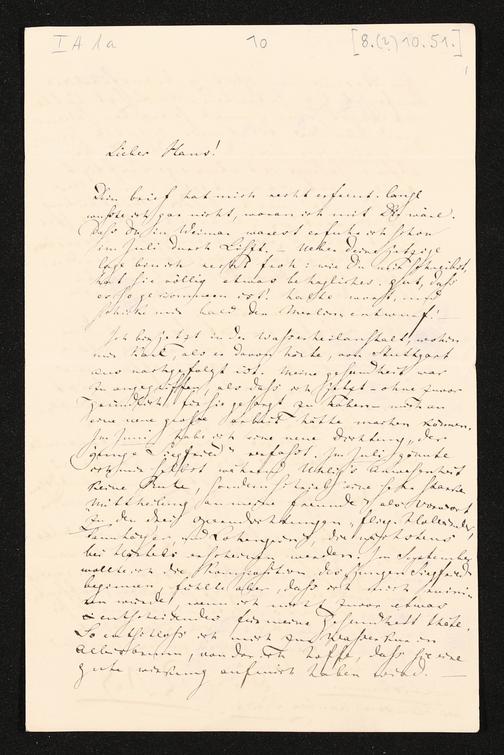 I A 1a 10 [8.(?)10.51.]
Lieber Hans!
Dein brief hat mich recht erfreut. lange
wußte ich gar nicht, woran ich mit Dir wäre.
Daß Du in Weimar warest erfuhr ich schon
im Juli durch Lißt. — Ueber deine jetzige
lage bin ich recht froh: wie Du mir schreibst,
hat sie völlig etwas behagliches. gut, daß
es so gekommen ist!
Ich bin jetzt in der Wasserheilanstalt, wohin
mir Karl, als er davon hörte, von Stuttgart
aus nachgefolgt ist. Meine gesundheit war
zu angegriffen, als daß ich jetzt — ohne zuvor
gründlich für sie gesorgt zu haben — mich an
eine neue große arbeit hätte machen können.
Im Juni habe ich eine neue dichtung, „der
junge Siegfried" verfaßt. Im Juli gönnte
ich mir selbst während Uhlig's Anwesenheit
keine Ruhe, sondern schrieb eine sehr starke
Mittheilung an meine freunde als Vorwort
zu den drei operndichtungen, flieg. Holländer,
Tannhäuser, und Lohengrin, die nächstens
bei Härtels erscheinen werden. Im September
wollte ich die Komposition des jungen Siegfried
beginnen, fühlte aber, daß ich mich ruinir-
en würde, wenn ich nicht zuvor etwas
entscheidendes für meine gesundheit thäte.
So entschloß ich mich zur Wasserkur in
Albisbrunn, von der ich hoffe, daß sie eine
gute wirkung auf mich haben wird. —